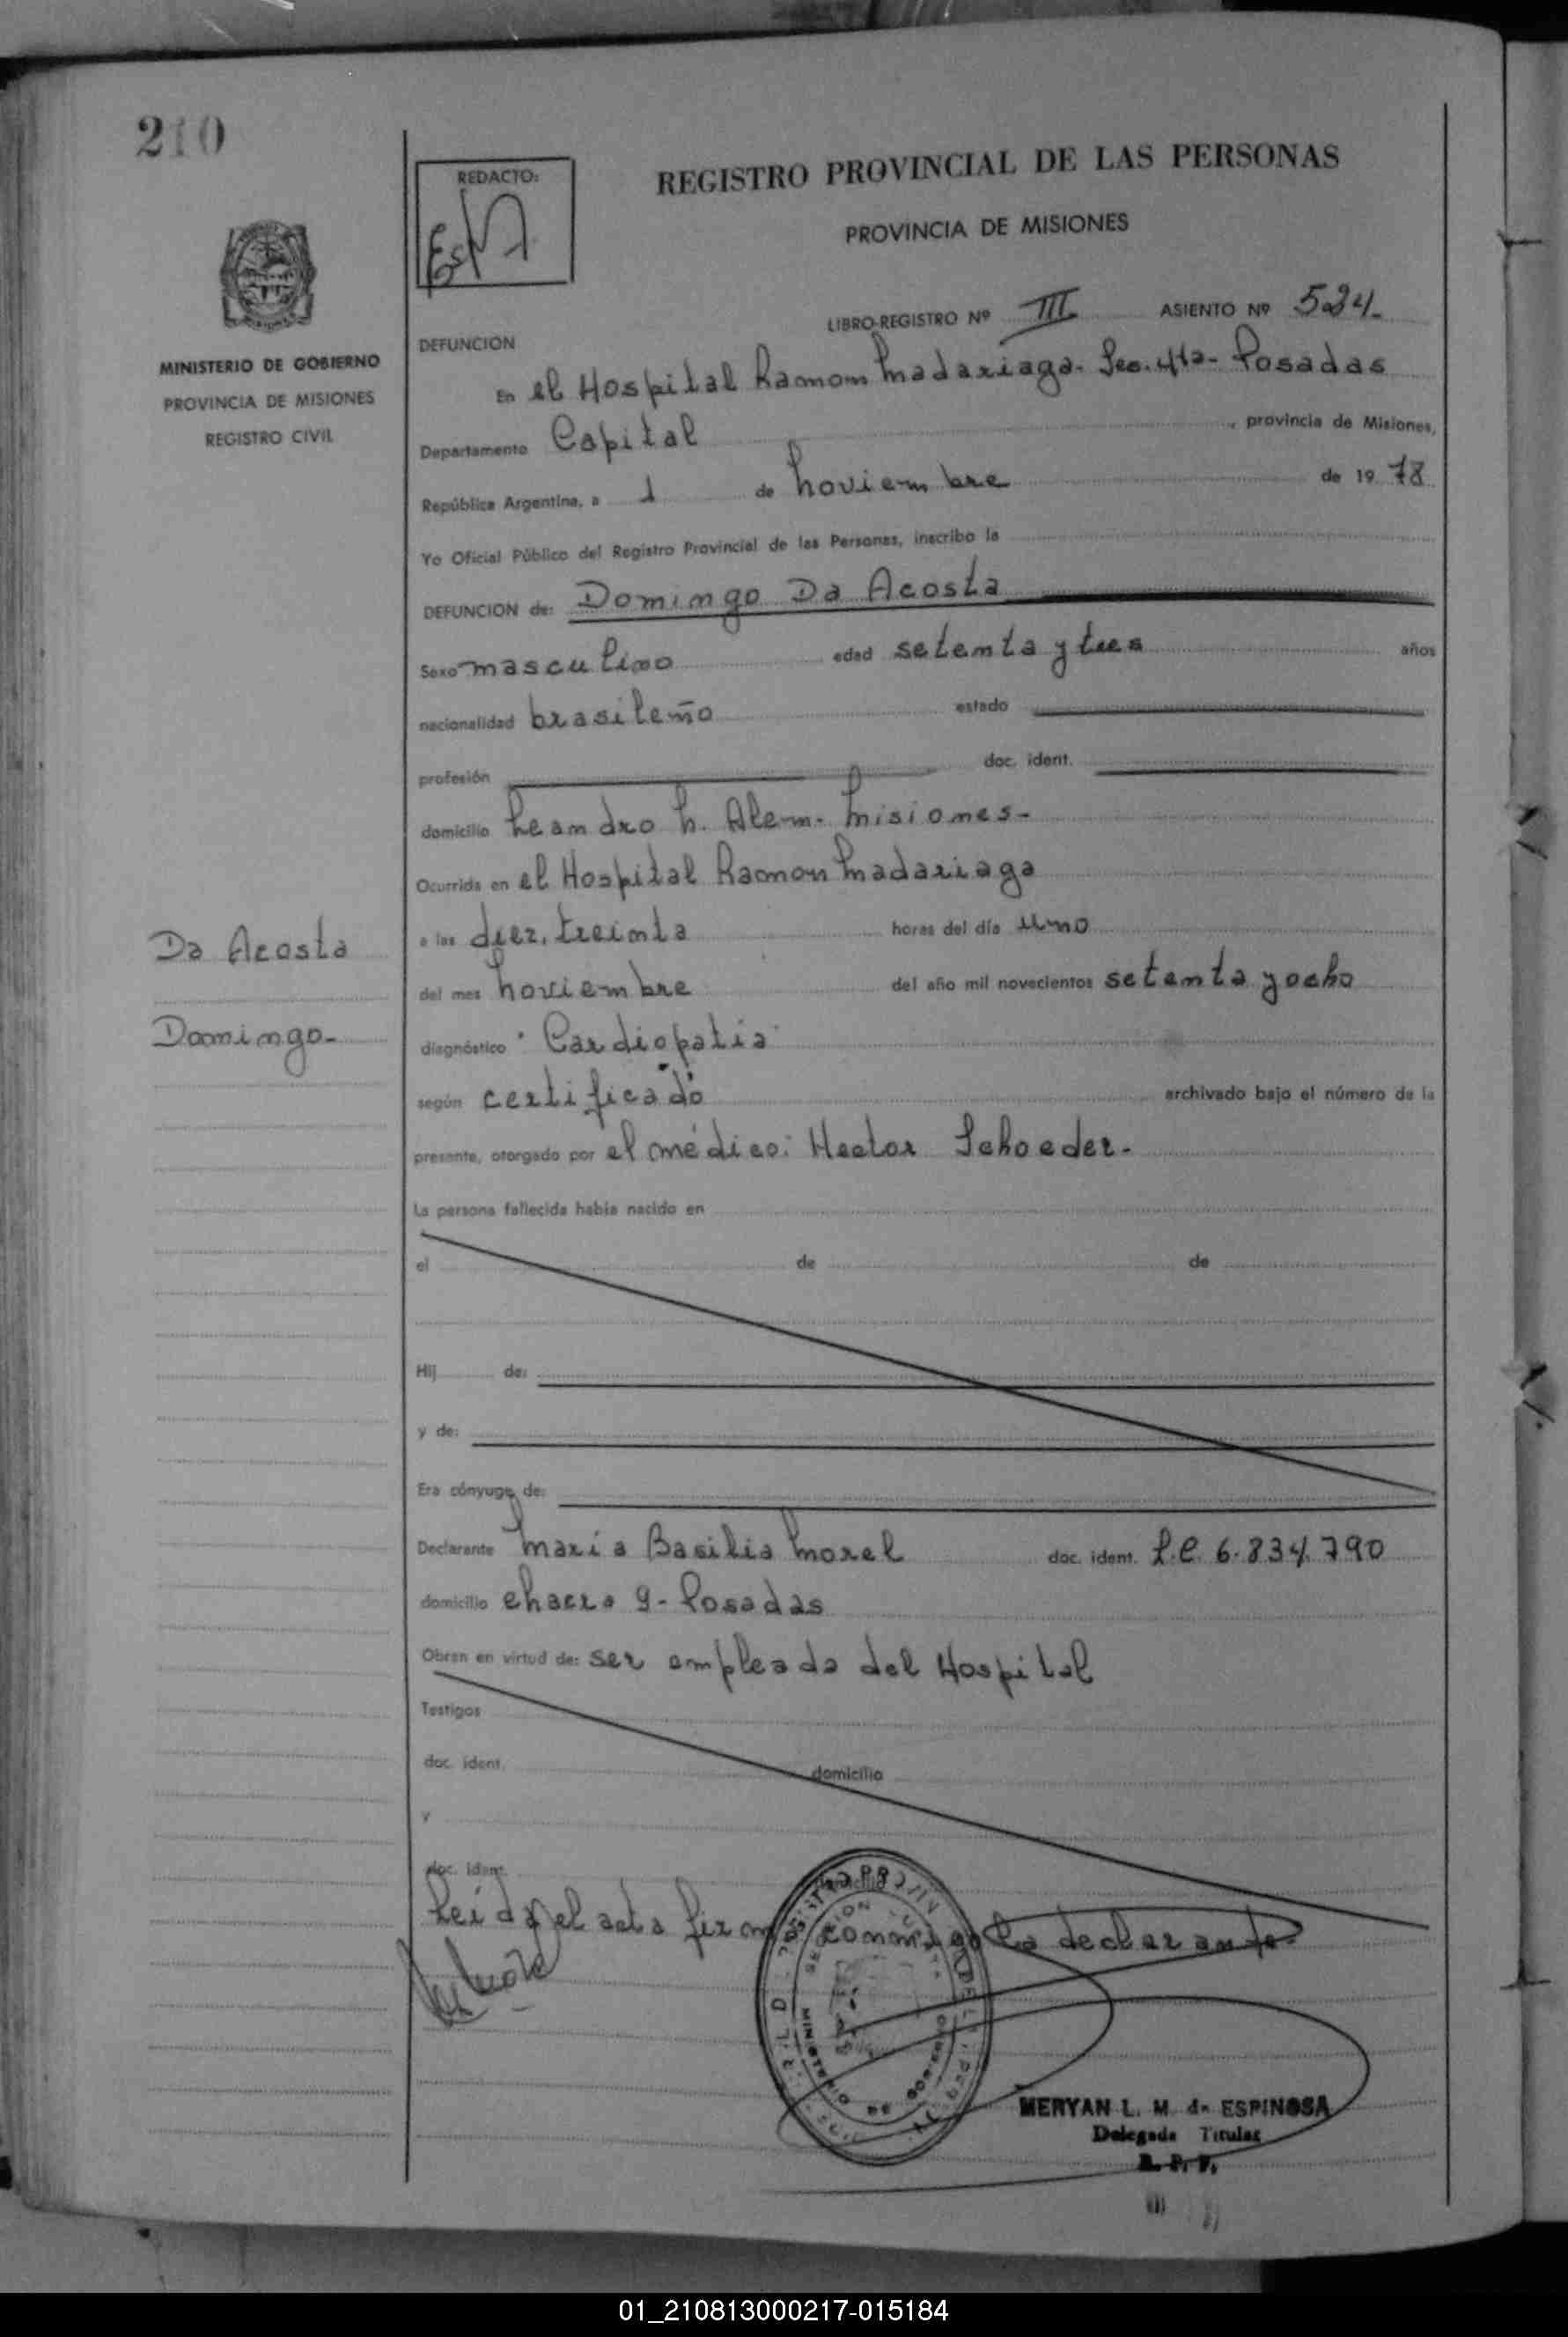 210
REDACTO:
REGISTRO PROVINCIAL DE LAS PERSONAS
PROVINCIA DE MISIONES
MINISTERIO DE GOBIERNO
PROVINCIA DE MISIONES
REGISTRO CIVIL
LIBRO-REGISTRO Nº III ASIENTO Nº 524.
DEFUNCION
En el Hospital Ramon Madariaga. Sec. 4ta- Posadas
Departamento Capital, provincia de Misiones,
República Argentina, a 1 de Noviembre de 19 78
Yo Oficial Público del Registro Provincial de las Personas, inscribo la
DEFUNCION de: Domingo Da Acosta
Sexo masculino edad setenta y tres años
nacionalidad brasileño estado
profesión doc. ident.
domicilio Leandro N. Alem. Misiones-
Ocurrida en el Hospital Ramon Madariaga
a las diez, treinta horas del día uno
del mes Noviembre del año mil novecientos setenta y ocho
Da Acosta
Domingo-
diagnóstico "Cardiopatia"
según certificado archivado bajo el número de la
presente, otorgado por el médico: Hector Schoeder-
La persona fallecida había nacido en
el de de
Hij de:
y de:
Era cónyuge de:
Declarante María Basilia Morel doc. ident. L.C. 6.834.790
domicilio chacra 9- Posadas
Obran en virtud de: ser empleada del Hospital
Testigos
doc. ident. domicilio
y
doc. ident. domicilio
Leida el acta firma conmigo la declarante-
MERYAN L. M. de ESPINOSA
Delegada Titular
R. P. P.
01_210813000217-015184